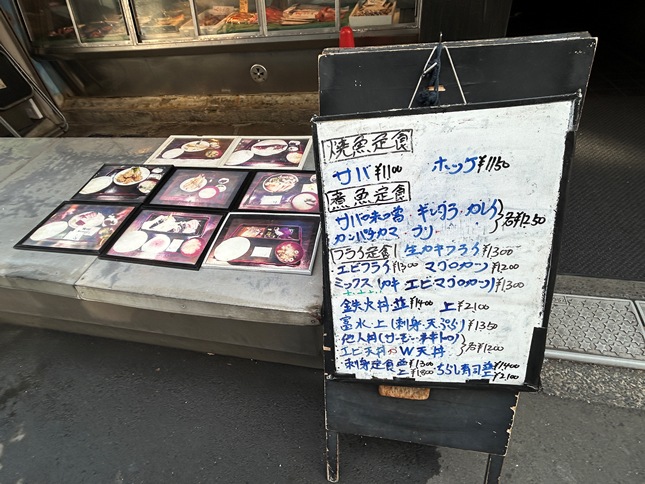 焼魚定食
サバ¥1100 ホッケ¥1150
煮魚定食
サバの味噌煮 ギンダラ・カレイ
カンパチカマ ブリ 各¥1250
フライ定食 生カキフライ¥1300
エビフライ¥1300 マグロカツ¥1200
ミックス(カキ エビマグロカツ)¥1300
鉄火丼・並¥1400 上¥2,100
富水・上(刺身・天ぷら)¥1350
他人丼(サーモン・ネギトロ)
エビ天丼 W天丼 各¥1200
刺身定食並¥1300 ちらし寿司並¥1400
上¥1800 上¥2,100